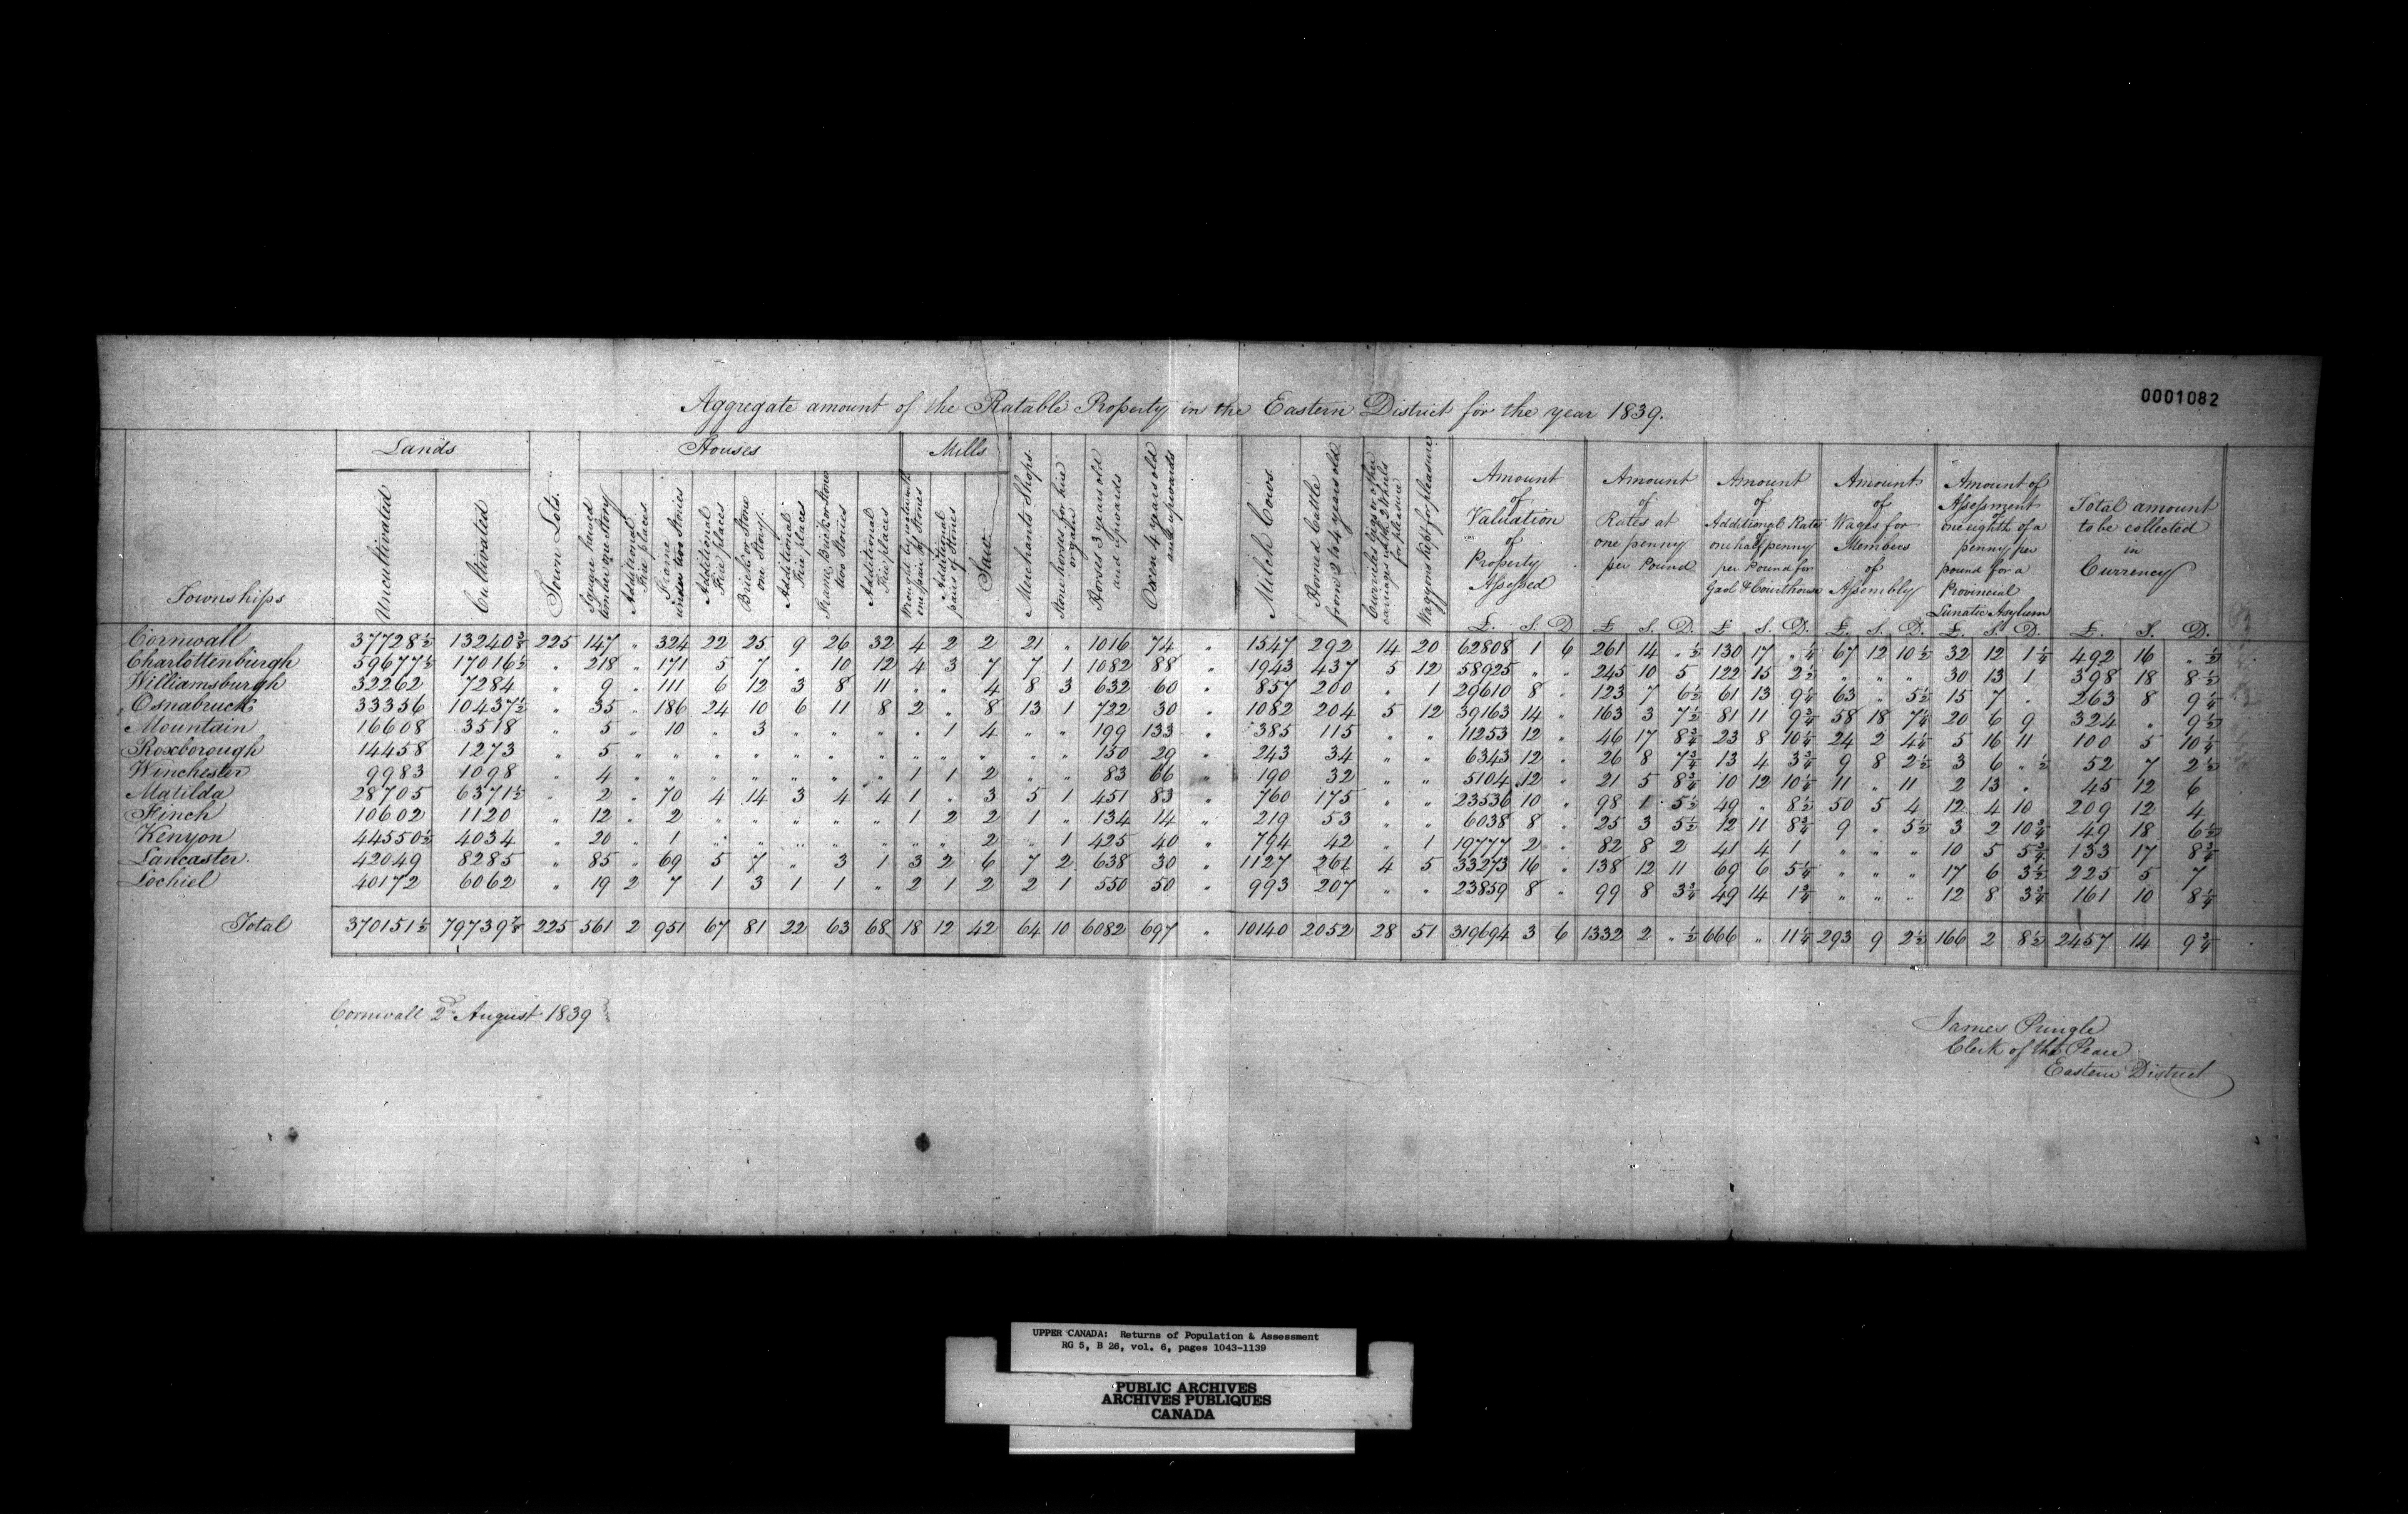 0001082
Aggregate amount of the Ratable Property in the Eastern District for the year 1839.
Townships | Lands: Uncultivated | Cultivated | Town Lots. | Houses: Square hewed timber one Story | Additional Fire places | Frame under two Stories | Additional Fire places | Brick or Stone one Story. | Additional Fire places | Frame, Brick or Stone two Stories | Additional Fire places | Mills: Wrought by water with one pair of Stones | Additional pairs of Stones | Saw | Merchants Shops. | Stone horses for hire or gain | Horses 3 years old and upwards | Oxen 4 years old and upwards | | Milch Cows. | Horned Cattle from 2 to 4 years old | Curricles Gigs or other carriages with 2 Wheels for pleasure | Waggons kept for pleasure | Amount of Valuation of Property Assessed £. S. D | Amount of Rates at one penny per Pound £ S. D. | Amount of Additional Rates one half penny per Pound for Gaol & Courthouse £ S. D. | Amount of Wages for Members of Assembly £. S. D. | Amount of Assessment one eighth of a penny per pound for a Provincial Lunatic Asylum £. S. D. | Total amount to be collected in Currency £. S. D.
Cornwall 37728½ 13240⅜ 225 147 " 324 22 25 9 26 32 4 2 2 21 " 1016 74 " 1547 292 14 20 62808 1 6 261 14 "½ 130 17 "¼ 67 12 10½ 32 12 1¼ 492 16 "½
Charlottenburgh 59677½ 17016½ " 218 " 171 5 7 " 10 12 4 3 7 7 1 1082 88 " 1943 437 5 12 58925 " " 245 10 5 122 15 2½ " " " 30 13 1 398 18 8½
Williamsburgh 32262 7284 " 9 " 111 6 12 3 8 11 " " 4 8 3 632 60 " 857 200 " 1 29610 8 " 123 7 6½ 61 13 9¼ 63 " 5½ 15 7 " 263 8 9¼
Osnabruck 33356 10437½ " 35 " 186 24 10 6 11 8 2 " 8 13 1 722 30 " 1082 204 5 12 39163 14 " 163 3 7½ 81 11 9¾ 58 18 7¼ 20 6 9 324 " 9½
Mountain 16608 3518 " 5 " 10 " 3 " " " " 1 4 " " 199 133 " 385 115 " " 11253 12 " 46 17 8¾ 23 8 10¼ 24 2 4¼ 5 16 11 100 5 10¼
Roxborough 14458 1273 " 5 " " " " " " " " " " " " 150 29 " 243 34 " " 6343 12 " 26 8 7¾ 13 4 3¾ 9 8 2½ 3 6 "½ 52 7 2½
Winchester 9983 1098 " 4 " " " " " " " 1 1 2 " " 83 66 " 190 32 " " 5104 12 " 21 5 8¾ 10 12 10¼ 11 " 11 2 13 " 45 12 6
Matilda 28705 6371½ " 2 " 70 4 14 3 4 4 1 " 3 5 1 451 83 " 760 175 " " 23536 10 " 98 1 5½ 49 " 8½ 50 5 4 12 4 10 209 12 4
Finch 10602 1120 " 12 " 2 " " " " " 1 2 2 1 " 134 14 " 219 53 " " 6038 8 " 25 3 5½ 12 11 8¾ 9 " 5½ 3 2 10¾ 49 18 6½
Kenyon 44550½ 4034 " 20 " 1 " " " " " " " 2 " 1 425 40 " 794 42 " 1 19777 2 " 82 8 2 41 4 1 " " " 10 5 5¾ 133 17 8¾
Lancaster 42049 8285 " 85 " 69 5 7 " 3 1 3 2 6 7 2 638 30 " 1127 261 4 5 33273 16 " 138 12 11 69 6 5¼ " " " 17 6 3½ 225 5 7
Lochiel 40172 6062 " 19 2 7 1 3 1 1 " 2 1 2 2 1 550 50 " 993 207 " " 23859 8 " 99 8 3¾ 49 14 1¾ " " " 12 8 3¾ 161 10 8¼
Total 370151½ 79739⅞ 225 561 2 951 67 81 22 63 68 18 12 42 64 10 6082 697 " 10140 2052 28 51 319694 3 6 1332 2 "½ 666 " 11¼ 293 9 2½ 166 2 8½ 2457 14 9¾
Cornwall 2d August 1839
James Pringle
Clerk of the Peace
Eastern District
UPPER CANADA: Returns of Population & Assessment
RG 5, B 26, vol. 6, pages 1043-1139
PUBLIC ARCHIVES
ARCHIVES PUBLIQUES
CANADA